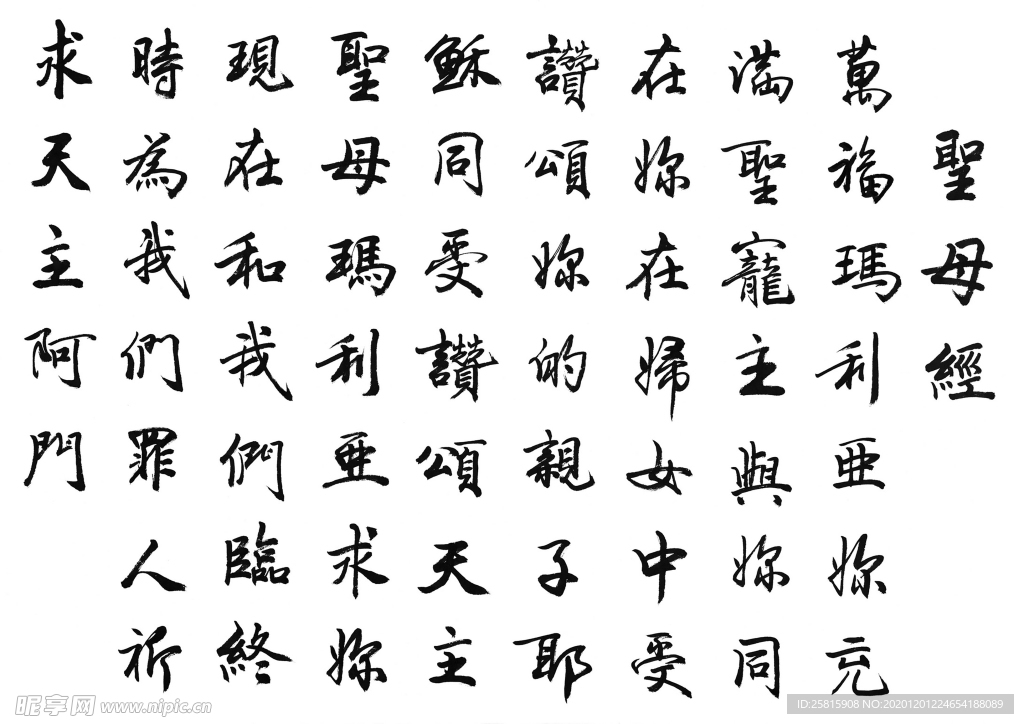 聖母經
萬福瑪利亞妳充
滿聖寵主與妳同
在妳在婦女中受
讚頌妳的親子耶
穌同受讚頌天主
聖母瑪利亞求妳
現在和我們臨終
時為我們罪人祈
求天主阿門
昵享网 www.nipic.cn
ID:25815908 NO:20201201224654188089